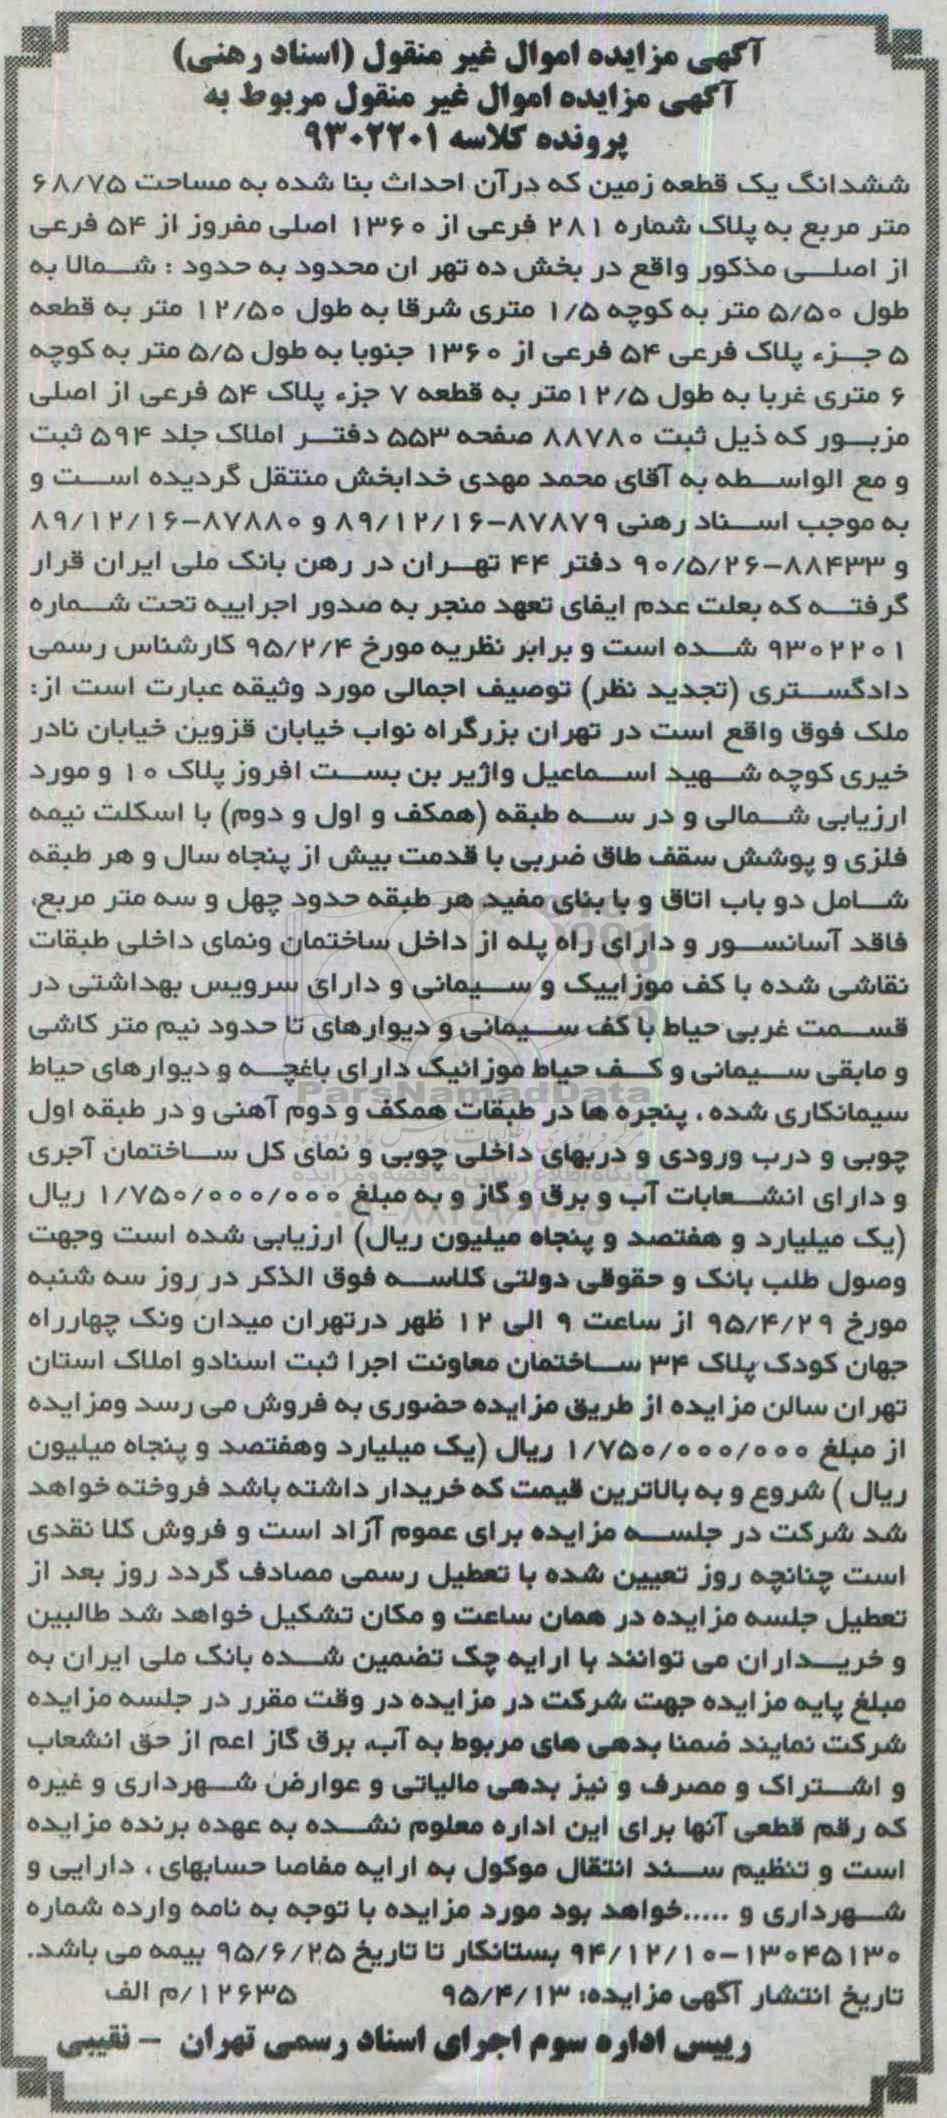 آگهی مزایده اموال غیر منقول (اسناد رهنی)
آگهی مزایده اموال غیر منقول مربوط به
پرونده کلاسه ۹۳۰۲۲۰۱
ششدانگ یک قطعه زمین که درآن احداث بنا شده به مساحت ۶۸/۷۵
متر مربع به پلاک شماره ۲۸۱ فرعی از ۱۳۶۰ اصلی مفروز از ۵۴ فرعی
از اصلی مذکور واقع در بخش ده تهر ان محدود به حدود : شمالا به
طول ۵/۵۰ متر به کوچه ۱/۵ متری شرقا به طول ۱۲/۵۰ متر به قطعه
۵ جزء پلاک فرعی ۵۴ فرعی از ۱۳۶۰ جنوبا به طول ۵/۵ متر به کوچه
۶ متری غربا به طول ۱۲/۵متر به قطعه ۷ جزء پلاک ۵۴ فرعی از اصلی
مزبور که ذیل ثبت ۸۸۷۸۰ صفحه ۵۵۳ دفتر املاک جلد ۵۹۴ ثبت
و مع الواسطه به آقای محمد مهدی خدابخش منتقل گردیده است و
به موجب اسناد رهنی ۸۷۸۷۹-۸۹/۱۲/۱۶ و ۸۷۸۸۰-۸۹/۱۲/۱۶
و ۸۸۴۳۳-۹۰/۵/۲۶ دفتر ۴۴ تهران در رهن بانک ملی ایران قرار
گرفته که بعلت عدم ایفای تعهد منجر به صدور اجراییه تحت شماره
۹۳۰۲۲۰۱ شده است و برابر نظریه مورخ ۹۵/۲/۴ کارشناس رسمی
دادگستری (تجدید نظر) توصیف اجمالی مورد وثیقه عبارت است از:
ملک فوق واقع است در تهران بزرگراه نواب خیابان قزوین خیابان نادر
خیری کوچه شهید اسماعیل واژیر بن بست افروز پلاک ۱۰ و مورد
ارزیابی شمالی و در سه طبقه (همکف و اول و دوم) با اسکلت نیمه
فلزی و پوشش سقف طاق ضربی با قدمت بیش از پنجاه سال و هر طبقه
شامل دو باب اتاق و با بنای مفید هر طبقه حدود چهل و سه متر مربع،
فاقد آسانسور و دارای راه پله از داخل ساختمان ونمای داخلی طبقات
نقاشی شده با کف موزاییک و سیمانی و دارای سرویس بهداشتی در
قسمت غربی حیاط با کف سیمانی و دیوارهای تا حدود نیم متر کاشی
و مابقی سیمانی و کف حیاط موزائیک دارای باغچه و دیوارهای حیاط
سیمانکاری شده ، پنجره ها در طبقات همکف و دوم آهنی و در طبقه اول
چوبی و درب ورودی و دربهای داخلی چوبی و نمای کل ساختمان آجری
و دارای انشعابات آب و برق و گاز و به مبلغ ۱/۷۵۰/۰۰۰/۰۰۰ ریال
(یک میلیارد و هفتصد و پنجاه میلیون ریال) ارزیابی شده است وجهت
وصول طلب بانک و حقوقی دولتی کلاسه فوق الذکر در روز سه شنبه
مورخ ۹۵/۴/۲۹ از ساعت ۹ الی ۱۲ ظهر درتهران میدان ونک چهارراه
جهان کودک پلاک ۳۴ ساختمان معاونت اجرا ثبت اسنادو املاک استان
تهران سالن مزایده از طریق مزایده حضوری به فروش می رسد ومزایده
از مبلغ ۱/۷۵۰/۰۰۰/۰۰۰ ریال (یک میلیارد وهفتصد و پنجاه میلیون
ریال ) شروع و به بالاترین قیمت که خریدار داشته باشد فروخته خواهد
شد شرکت در جلسه مزایده برای عموم آزاد است و فروش کلا نقدی
است چنانچه روز تعیین شده با تعطیل رسمی مصادف گردد روز بعد از
تعطیل جلسه مزایده در همان ساعت و مکان تشکیل خواهد شد طالبین
و خریداران می توانند با ارایه چک تضمین شده بانک ملی ایران به
مبلغ پایه مزایده جهت شرکت در مزایده در وقت مقرر در جلسه مزایده
شرکت نمایند ضمنا بدهی های مربوط به آب، برق گاز اعم از حق انشعاب
و اشتراک و مصرف و نیز بدهی مالیاتی و عوارض شهرداری و غیره
که رقم قطعی آنها برای این اداره معلوم نشده به عهده برنده مزایده
است و تنظیم سند انتقال موکول به ارایه مفاصا حسابهای ، دارایی و
شهرداری و .....خواهد بود مورد مزایده با توجه به نامه وارده شماره
۱۳۰۴۵۱۳۰-۹۴/۱۲/۱۰ بستانکار تا تاریخ ۹۵/۶/۲۵ بیمه می باشد.
تاریخ انتشار آگهی مزایده: ۹۵/۴/۱۳ ۱۲۶۳۵/م الف
رییس اداره سوم اجرای اسناد رسمی تهران - نقیبی
ParsNamadData
پایگاه اطلاع رسانی مناقصه و مزایده